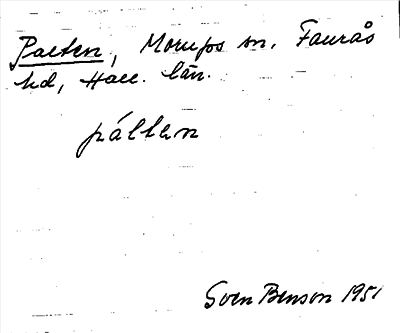 Palten, Morups sn. Faurås
hd, Hall. län.
pálten
Sven Benson 1951